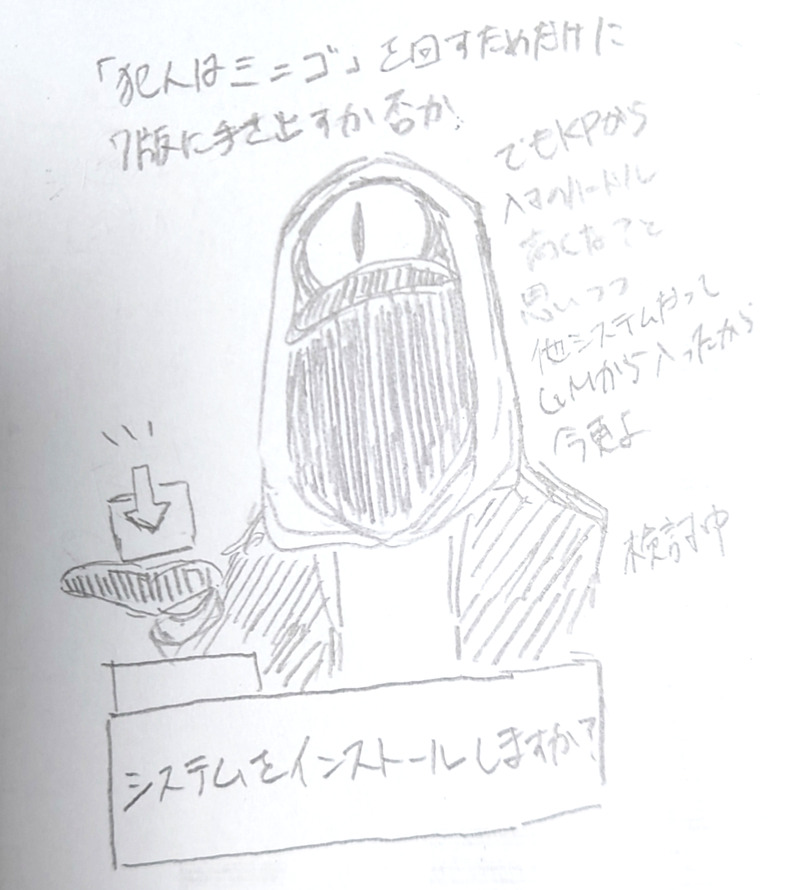 「犯人はミ=ゴ」を回すためだけに
7版に手を出すか否か
でもKPから
入るのハードル
高くな?と
思いつつ
他システムやって
GMから入ったから
今更よ
検討中
システムをインストールしますか?